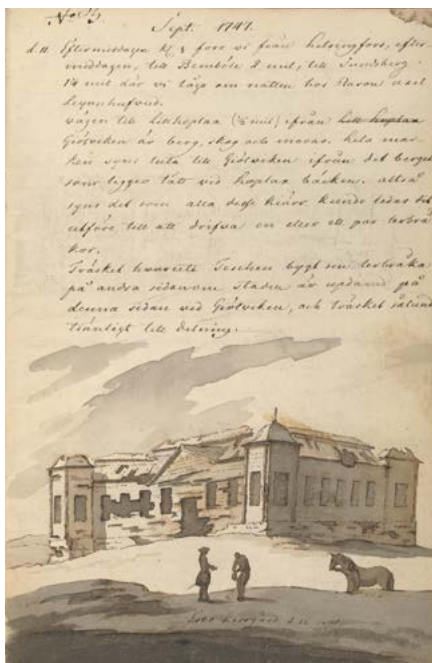 Sept. 1747.
d. 11. Eftermiddagen kl. foro vi från Helsingfors, efter
middagen, till Bemböle 2 mil, till Sundsberg
1¼ mil där vi lågo om natten hos Baron Axel
Leijonhufvud.
vägen till Litthoplax (½ mil) ifrån Litt hoplax
Giötviken är berg, skog och moras. hela mar
ken syns luta till Giötviken ifrån det berget
som ligger tätt vid hoplax bäcken. altså
syns det som alla desse kiärr kunde ledas det
utföre till att drifva en eller ett par
Träsket hvarest bygt sin
på andra sidan om staden är updämd på
denna sidan vid Giötviken, och Träsket sålund
tiänligt till